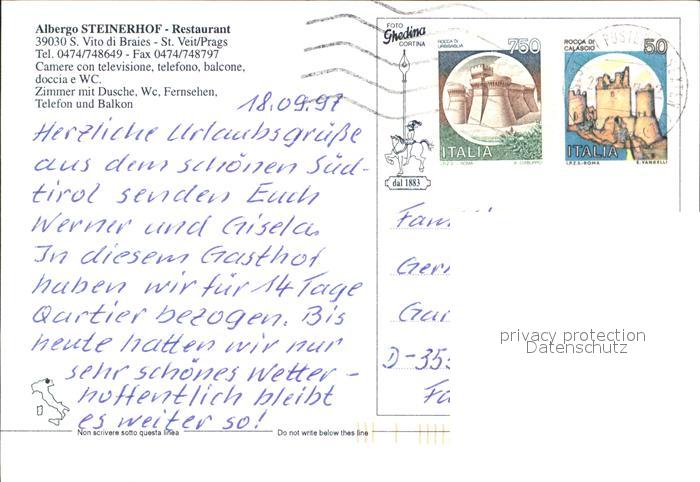 Albergo STEINERHOF - Restaurant
39030 S. Vito di Braies - St. Veit/Prags
Tel. 0474/748649 - Fax 0474/748797
Camere con televisione, telefono, balcone,
doccia e WC.
Zimmer mit Dusche, Wc, Fernsehen,
Telefon und Balkon
18.09.97
Herzliche Urlaubsgrüße
aus dem schönen Süd-
tirol senden Euch
Werner und Gisela
In diesem Gasthof
haben wir für 14 Tage
Qartier bezogen. Bis
heute hatten wir nur
sehr schönes Wetter -
hoffentlich bleibt
es weiter so!
Non scrivere sotto questa linea
Do not write below thes line
FOTO
Ghedina
CORTINA
dal 1883
ROCCA DI
URBISAGLIA
750
ITALIA
I.P.Z.S. - ROMA
ROCCA DI
CALASCIO
50
ITALIA
I.P.Z.S.-ROMA
E. VANGELLI
D-35
privacy protection
Datenschutz